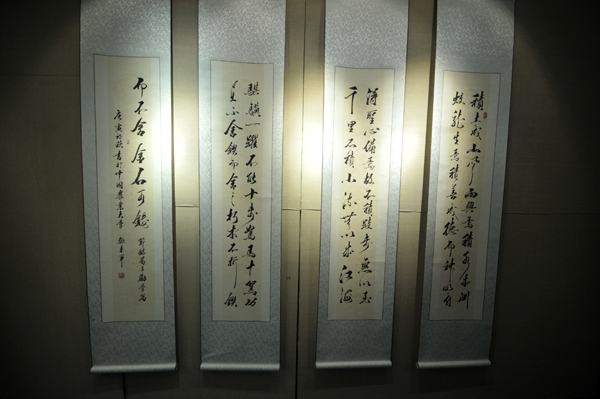 積土成山風雨興焉積水成淵
蛟龍生焉積善成德而神明自
得聖心備焉故不積跬步無以至
千里不積小流無以成江海
騏驥一躍不能十步駑馬十駕功
在不舍鍥而舍之朽木不折鍥
而不舍金石可鏤 節錄荀子勸學篇
庚寅初秋書於中國農業大學